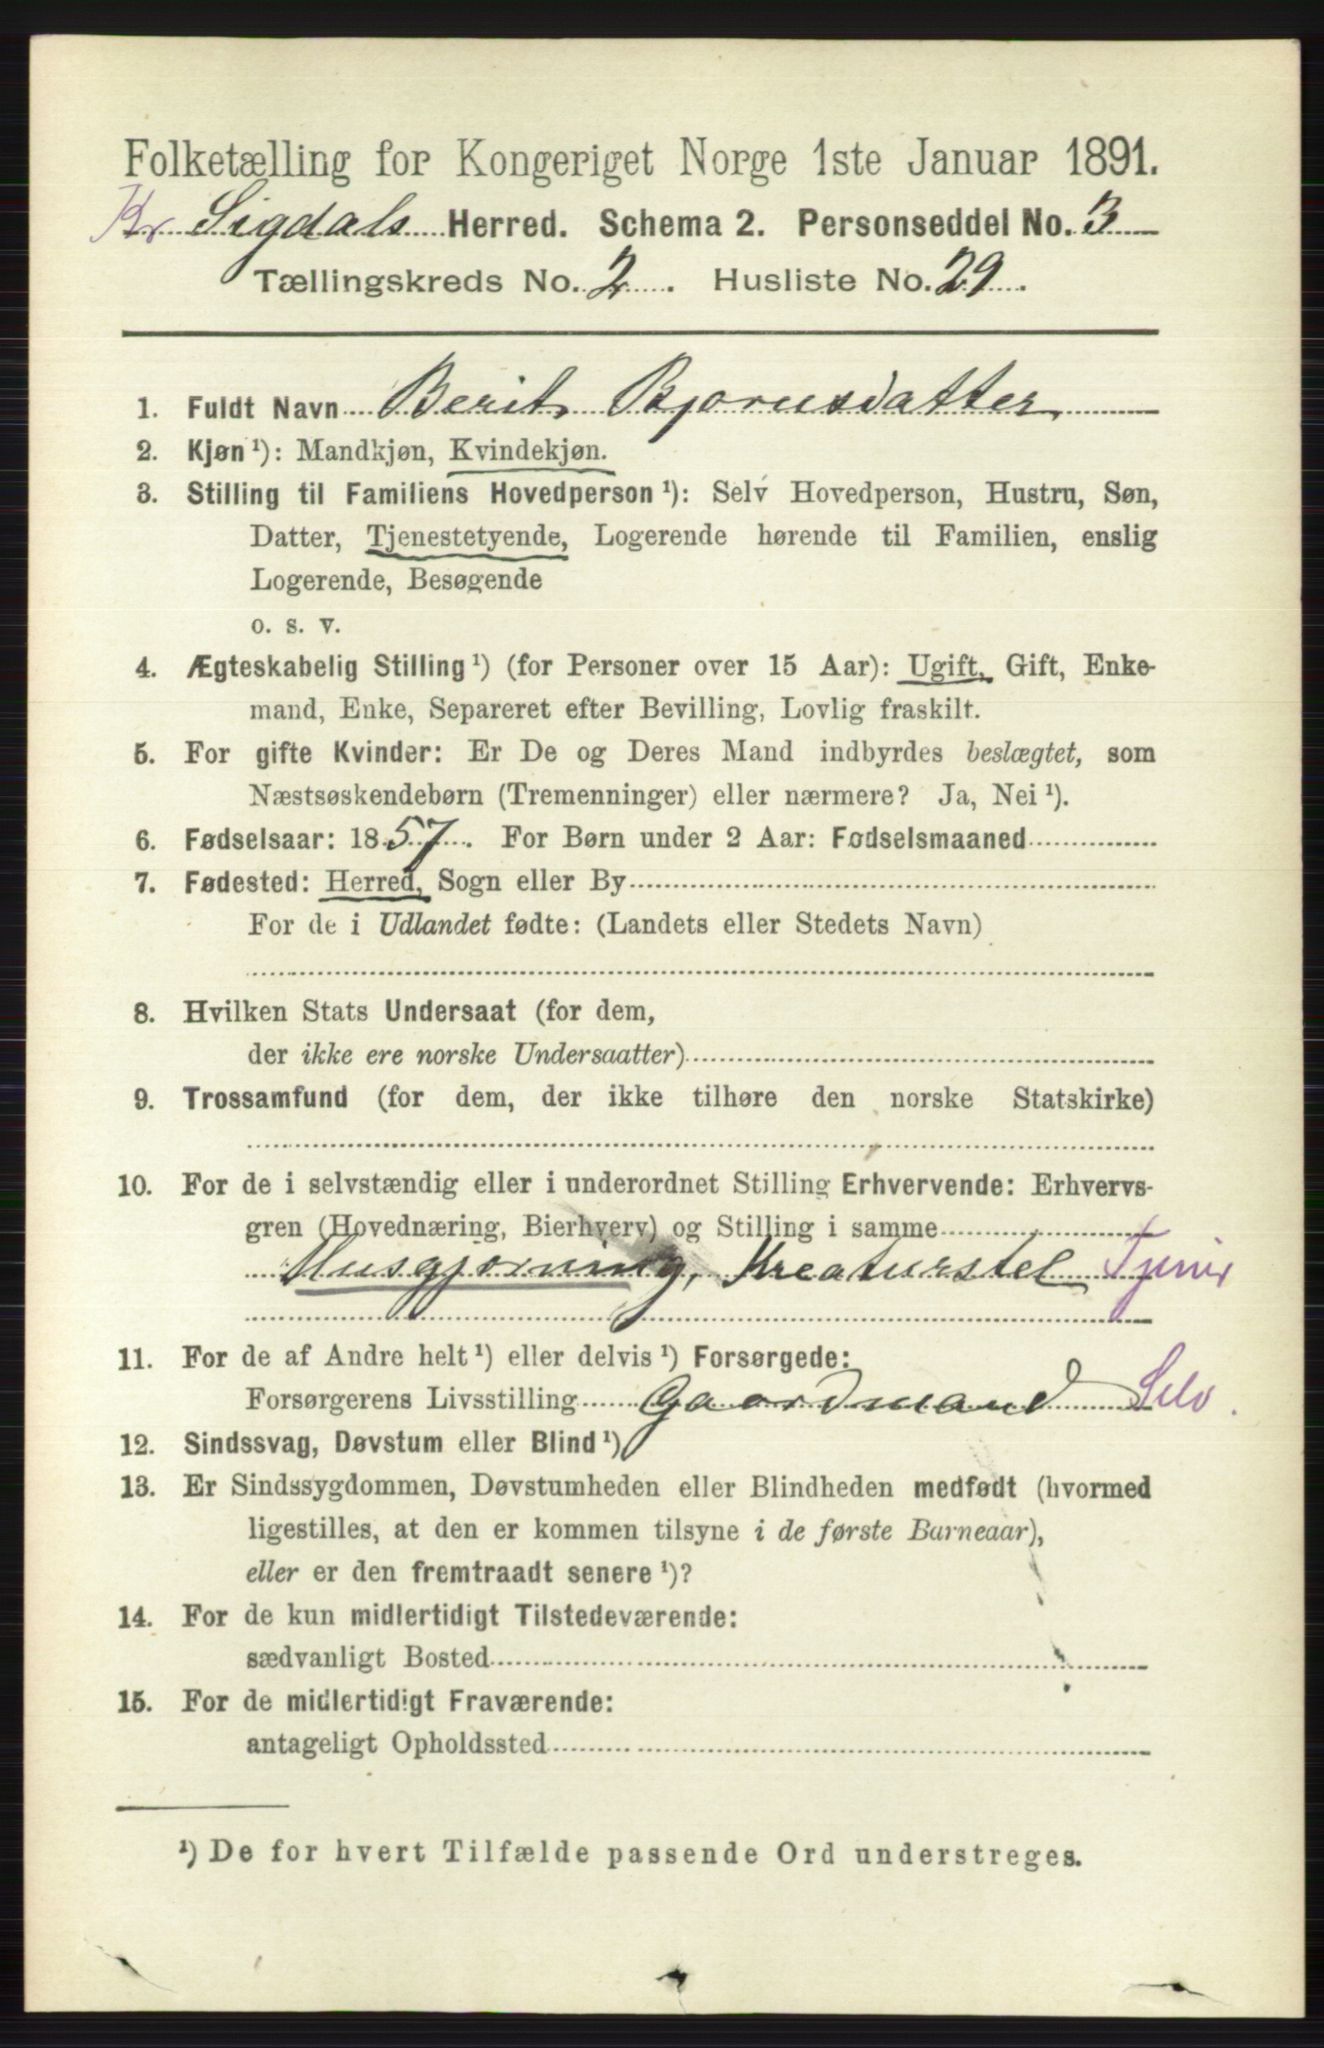 Folketælling for Kongeriget Norge 1ste Januar 1891.
Kr Sigdals Herred. Schema 2. Personseddel No. 3
Tællingskreds No. 2. Husliste No. 29.
1. Fuldt Navn Berit Bjornsdatter
2. Kjøn ¹): Mandkjøn, Kvindekjøn.
3. Stilling til Familiens Hovedperson ¹): Selv Hovedperson, Hustru, Søn,
Datter, Tjenestetyende, Logerende hørende til Familien, enslig
Logerende, Besøgende
o. s. v.
4. Ægteskabelig Stilling ¹) (for Personer over 15 Aar): Ugift, Gift, Enke-
mand, Enke, Separeret efter Bevilling, Lovlig fraskilt.
5. For gifte Kvinder: Er De og Deres Mand indbyrdes beslægtet, som
Næstsøskendebørn (Tremenninger) eller nærmere? Ja, Nei ¹).
6. Fødselsaar: 1857. For Børn under 2 Aar: Fødselsmaaned
7. Fødested: Herred, Sogn eller By
For de i Udlandet fødte: (Landets eller Stedets Navn)
8. Hvilken Stats Undersaat (for dem,
der ikke ere norske Undersaatter)
9. Trossamfund (for dem, der ikke tilhøre den norske Statskirke)
10. For de i selvstændig eller i underordnet Stilling Erhvervende: Erhvervs-
gren (Hovednæring, Bierhverv) og Stilling i samme
Husgjorning, Kreaturstel Tjener
11. For de af Andre helt ¹) eller delvis ¹) Forsørgede:
Forsørgerens Livsstilling Gaardmand Selv.
12. Sindssvag, Døvstum eller Blind ¹)
13. Er Sindssygdommen, Døvstumheden eller Blindheden medfødt (hvormed
ligestilles, at den er kommen tilsyne i de første Barneaar),
eller er den fremtraadt senere ¹)?
14. For de kun midlertidigt Tilstedeværende:
sædvanligt Bosted
15. For de midlertidigt Fraværende:
antageligt Opholdssted
¹) De for hvert Tilfælde passende Ord understreges.